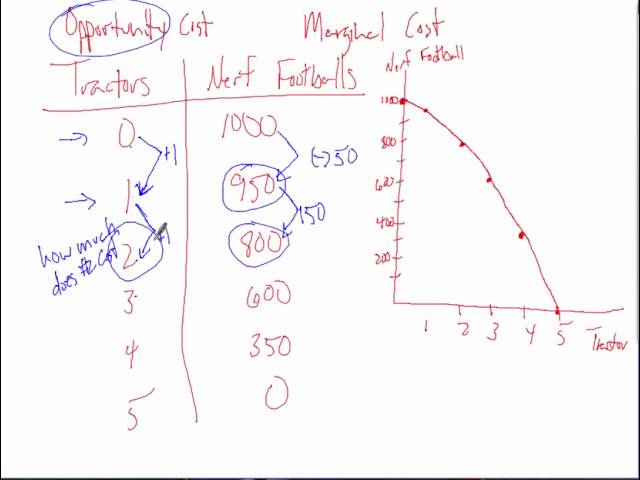 Opportunity Cost
Marginal Cost
Tractors Nerf Footballs
0 1000
+1
(-) 50
1 950
+1
150
how much
does #2 cost
2 800
3 600
4 350
5 0
Nerf Football
1000
800
600
400
200
1 2 3 4 5
Tractor